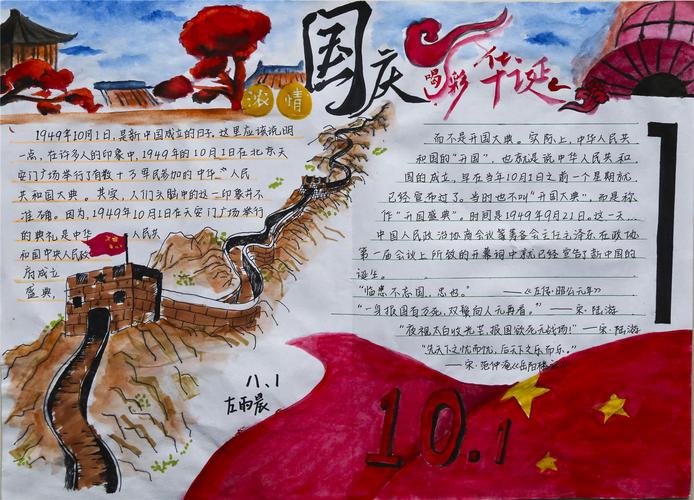 国庆
喝彩华诞
浓情
1949年10月1日,是新中国成立的日子,这里应该说明
一点,在许多人的印象中,1949年的10月1日在北京天
安门广场举行了有数十万军民参加的中华人民
共和国大典。其实,人们头脑中的这一印象并不
准确。因为,1949年10月1日在天安门广场举行
的典礼是中华人民共
和国中央人民政
府成立
盛典,
而不是开国大典。实际上,中华人民共
和国的“开国”,也就是说中华人民共和
国的成立,早在当年10月1日之前一个星期就
已经宣布过了。当时也不叫“开国大典”,而是称
作“开国盛典”,时间是1949年9月21日。这一天
中国人民政治协商会议筹备会主任毛泽东在政协
第一届会议上所致的开幕词中就已经宣告了新中国的
诞生。
“临患不忘国,忠也。” ——《左传·昭公元年》
“一身报国有万死,双鬓向人无再青。”——宋·陆游
“夜视太白收光芒,报国欲死无战场!”——宋·陆游
“先天下之忧而忧,后天下之乐而乐。”
——宋·范仲淹《岳阳楼记》
1
八、1
左雨晨
10.1